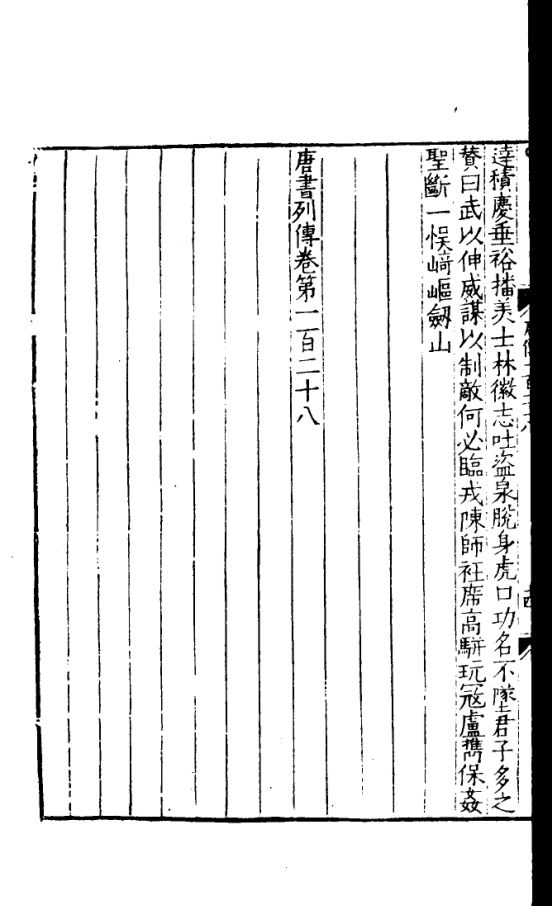 達積慶垂裕播美士林徽志吐盜泉脫身虎口功名不墜君子多之
贊曰武以伸威謀以制敵何必臨戎陳師衽席高駢玩寇盧攜保姦
聖斷一悞崎嶇劒山
唐書列傳卷第一百二十八